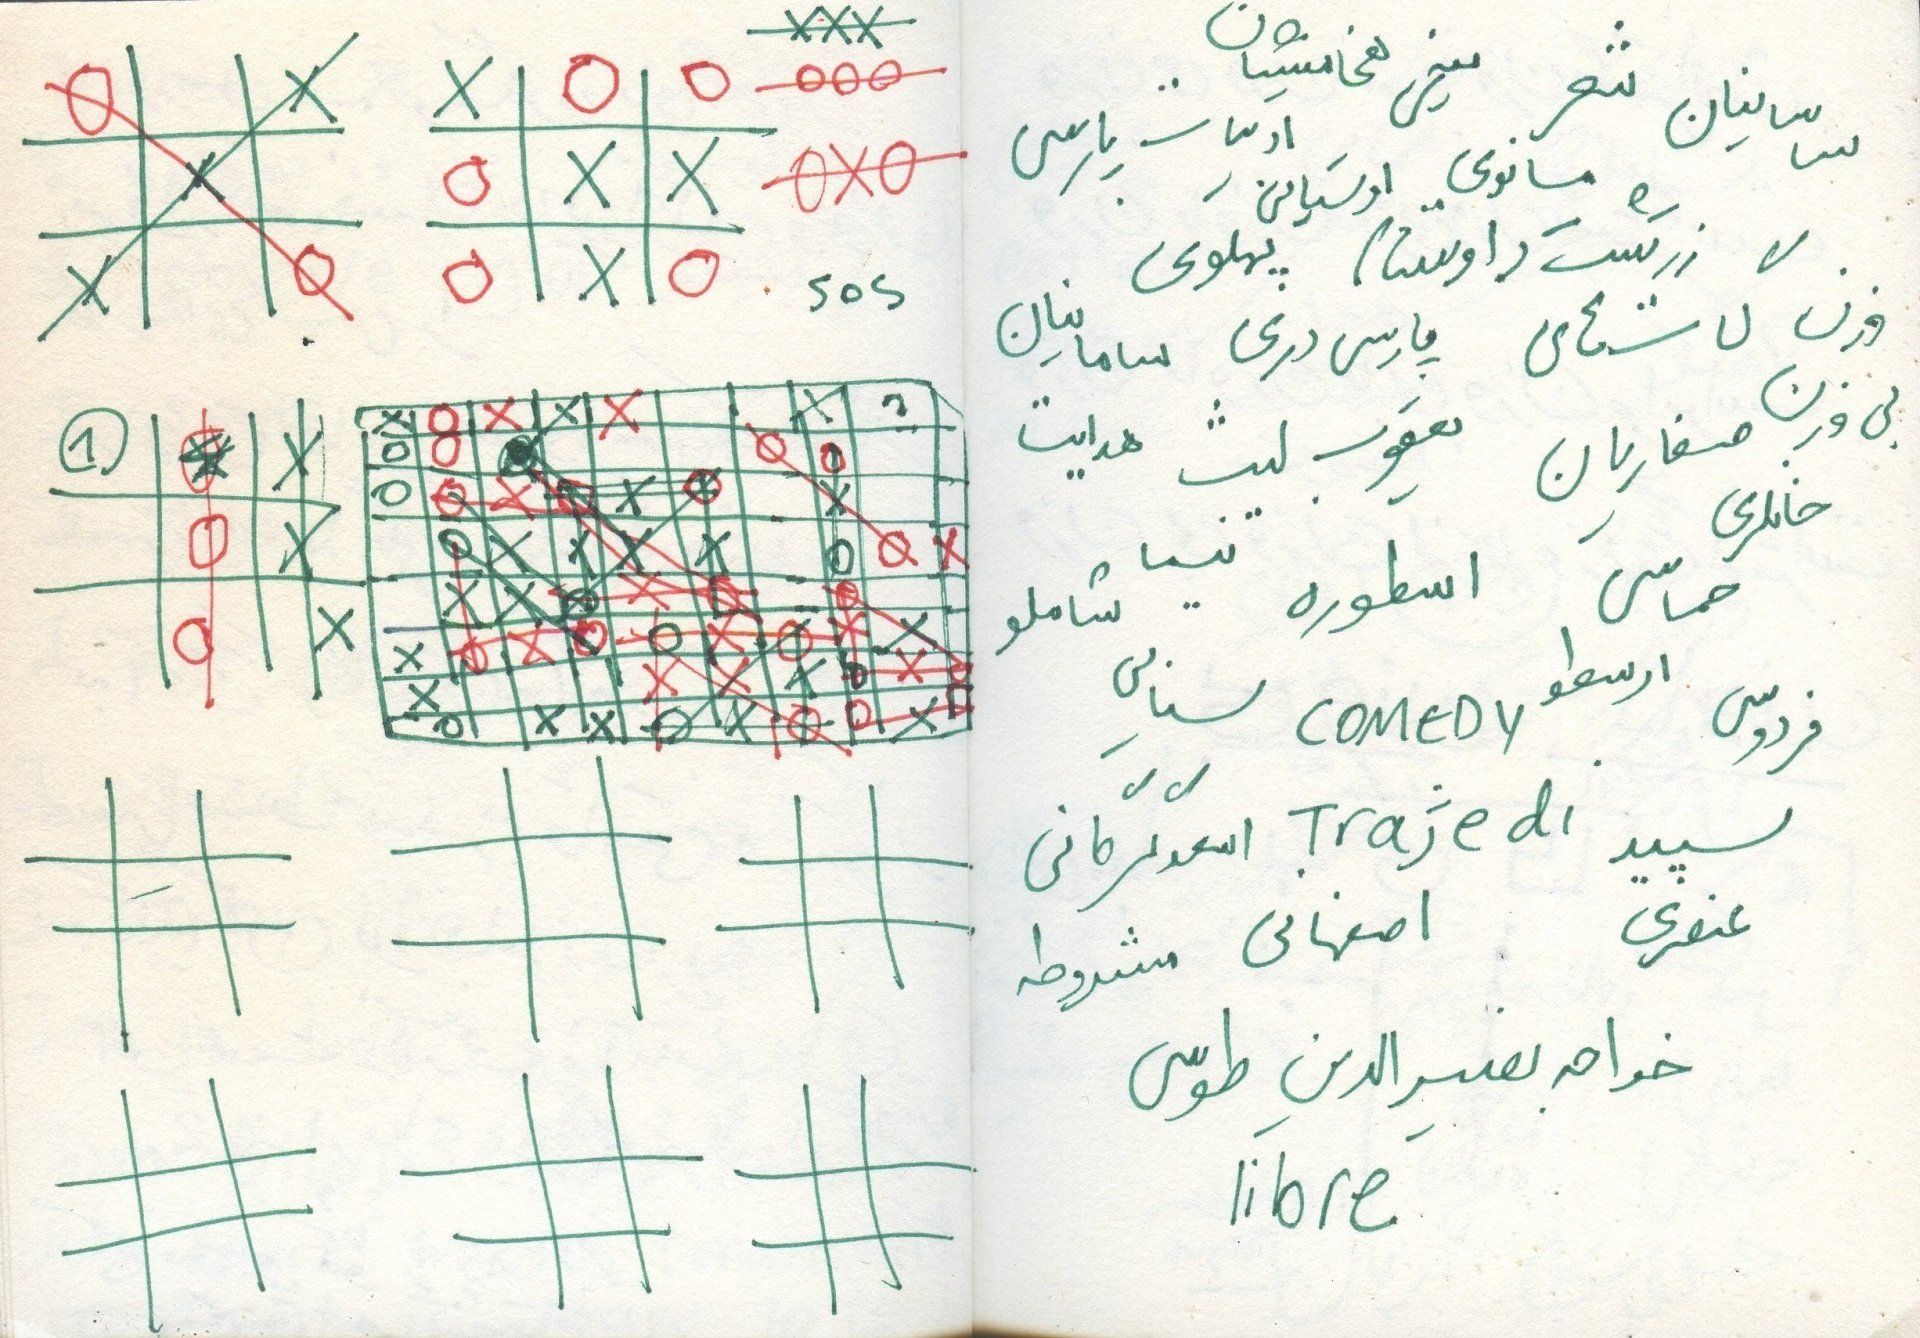 XXX
OOO
OXO
SOS
1
ساسانیان شعر میخی هخامنشیان
ادبیات پارسی
مانوی اوستایی
زرتشت (اوستا) پهلوی
وزن پارسی دری سامانیان
بی وزن صفاریان یعقوب لیث هدایت
خانلری
حماسی اسطوره نیما شاملو
فردوسی ارسطو COMEDY سنایی
سپید Trajedi اسعد گرگانی
عنصری اصفهانی مشروطه
خواجه نصیرالدین طوسی
libre